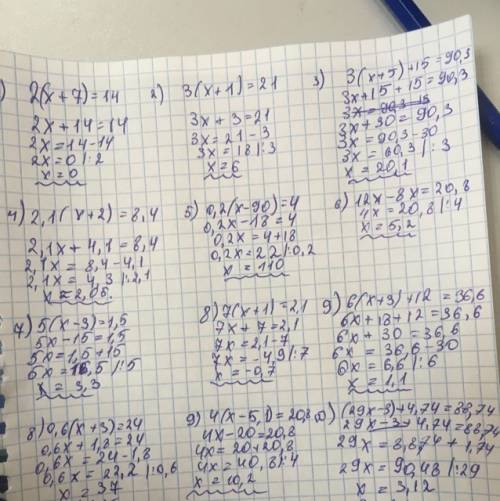 1)
2(x+7)=14
2x+14=14
2x=14-14
2x=0 |:2
x=0
2) 3(x+1)=21
3x+3=21
3x=21-3
3x=18 |:3
x=6
3) 3(x+5)+15=90,3
3x+15+15=90,3
3x=90,3-15
3x+30=90,3
3x=90,3-30
3x=60,3 |:3
x=20,1
4) 2,1(x+2)=8,4
2,1x+4,1=8,4
2,1x=8,4-4,1
2,1x=4,3 |:2,1
x=2,05
5) 0,2(x-90)=4
0,2x-18=4
0,2x=4+18
0,2x=22 |:0,2
x=110
6) 12x-8x=20,8
4x=20,8 |:4
x=5,2
7) 5(x-3)=1,5
5x-15=1,5
5x=1,5+15
5x=16,5 |:5
x=3,3
8) 7(x+1)=2,1
7x+7=2,1
7x=2,1-7
7x=-4,9 |:7
x=-0,7
9) 6(x+3)+12=36,6
6x+18+12=36,6
6x+30=36,6
6x=36,6-30
6x=6,6 |:6
x=1,1
8) 0,6(x+3)=24
0,6x+1,8=24
0,6x=24-1,8
0,6x=22,2 |:0,6
x=37
9) 4(x-5,)=20,8
4x-20=20,8
4x=20+20,8
4x=40,8 |:4
x=10,2
(29x-3)+4,74=88,74
29x-3+4,74=88,74
29x=8,874+1,74
29x=90,48 |:29
x=3,12